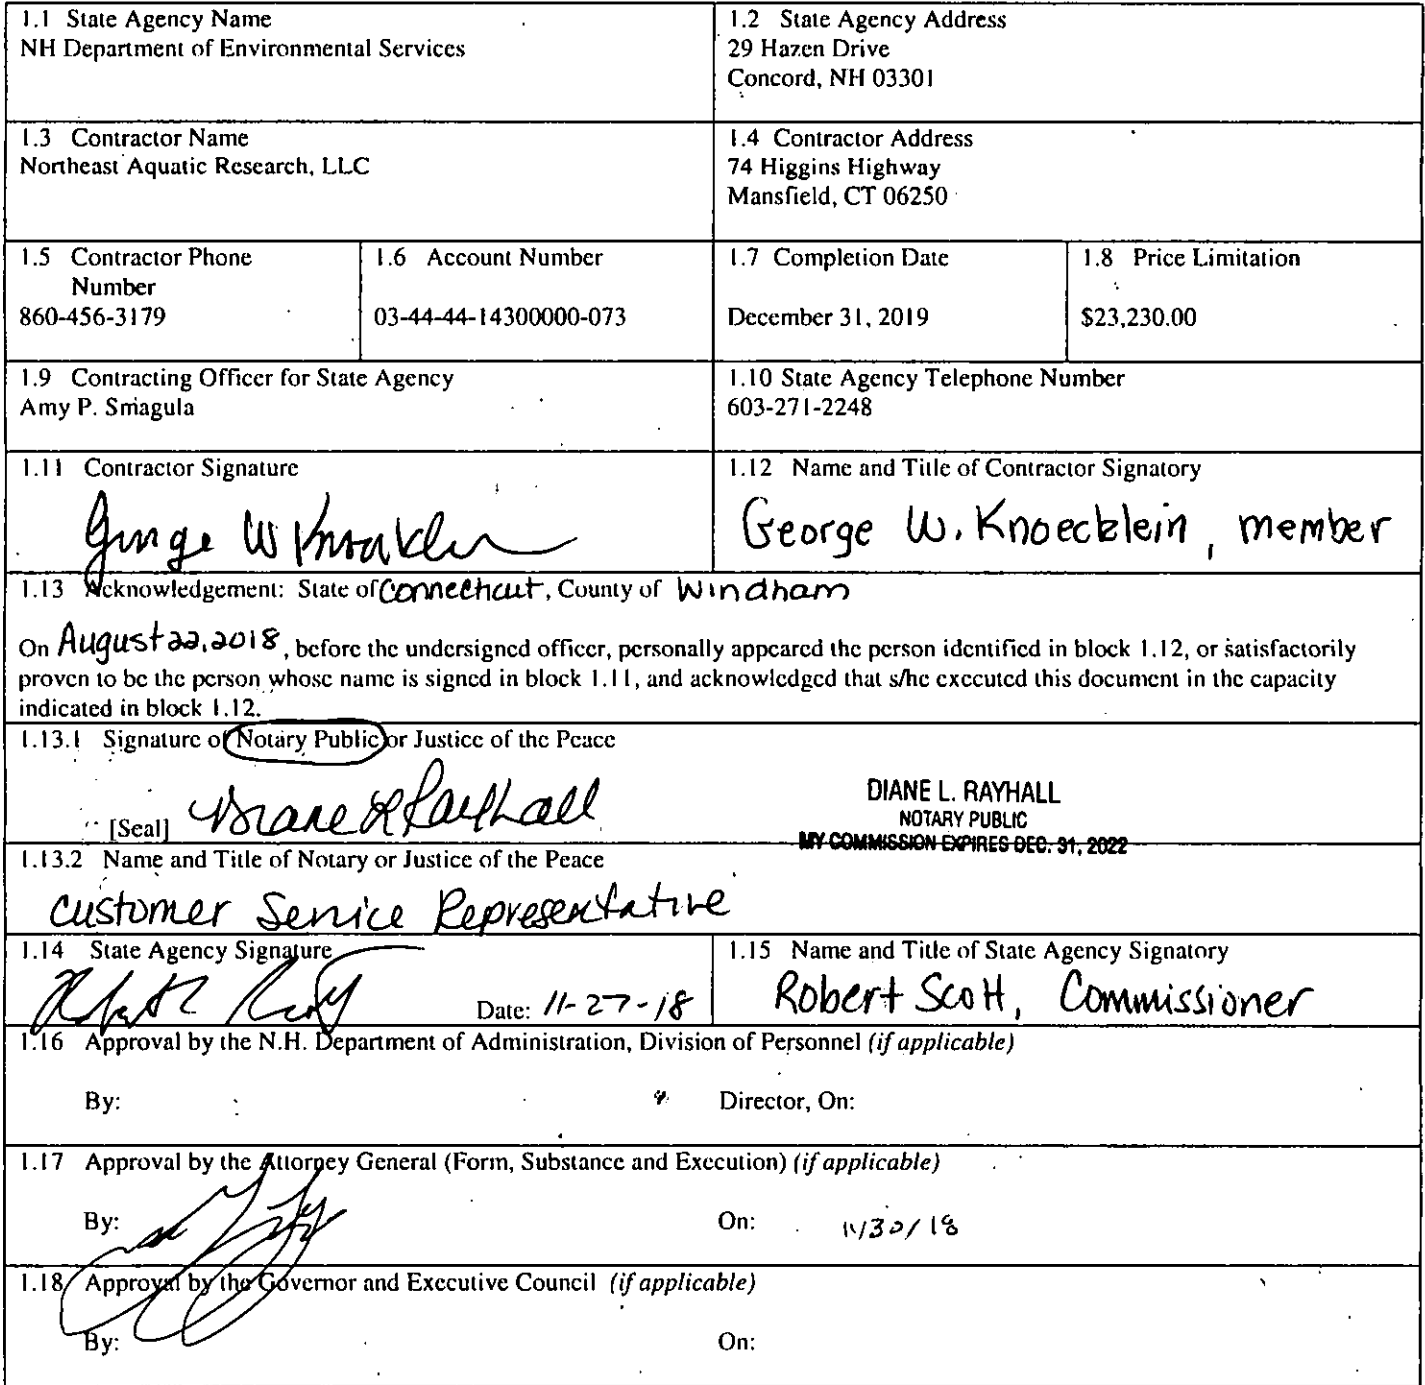 1.1 State Agency Name
NH Department of Environmental Services
1.2 State Agency Address
29 Hazen Drive
Concord, NH 03301
1.3 Contractor Name
Northeast Aquatic Research, LLC
1.4 Contractor Address
74 Higgins Highway
Mansfield, CT 06250
1.5 Contractor Phone
Number
860-456-3179
1.6 Account Number
03-44-44-14300000-073
1.7 Completion Date
December 31, 2019
1.8 Price Limitation
$23,230.00
1.9 Contracting Officer for State Agency
Amy P. Smagula
1.10 State Agency Telephone Number
603-271-2248
1.11 Contractor Signature
George W Knoecklein
1.12 Name and Title of Contractor Signatory
George W. Knoecklein, member
1.13 Acknowledgement: State of Connecticut, County of Windham
On August 22, 2018, before the undersigned officer, personally appeared the person identified in block 1.12, or satisfactorily
proven to be the person whose name is signed in block 1.11, and acknowledged that s/he executed this document in the capacity
indicated in block 1.12.
1.13.1 Signature of Notary Public or Justice of the Peace
[Seal] Diane L Rayhall
DIANE L. RAYHALL
NOTARY PUBLIC
MY COMMISSION EXPIRES DEC. 31, 2022
1.13.2 Name and Title of Notary or Justice of the Peace
Customer Service Representative
1.14 State Agency Signature
Date: 11-27-18
1.15 Name and Title of State Agency Signatory
Robert Scott, Commissioner
1.16 Approval by the N.H. Department of Administration, Division of Personnel (if applicable)
By: Director, On:
1.17 Approval by the Attorney General (Form, Substance and Execution) (if applicable)
By: On: 11/30/18
1.18 Approval by the Governor and Executive Council (if applicable)
By: On: